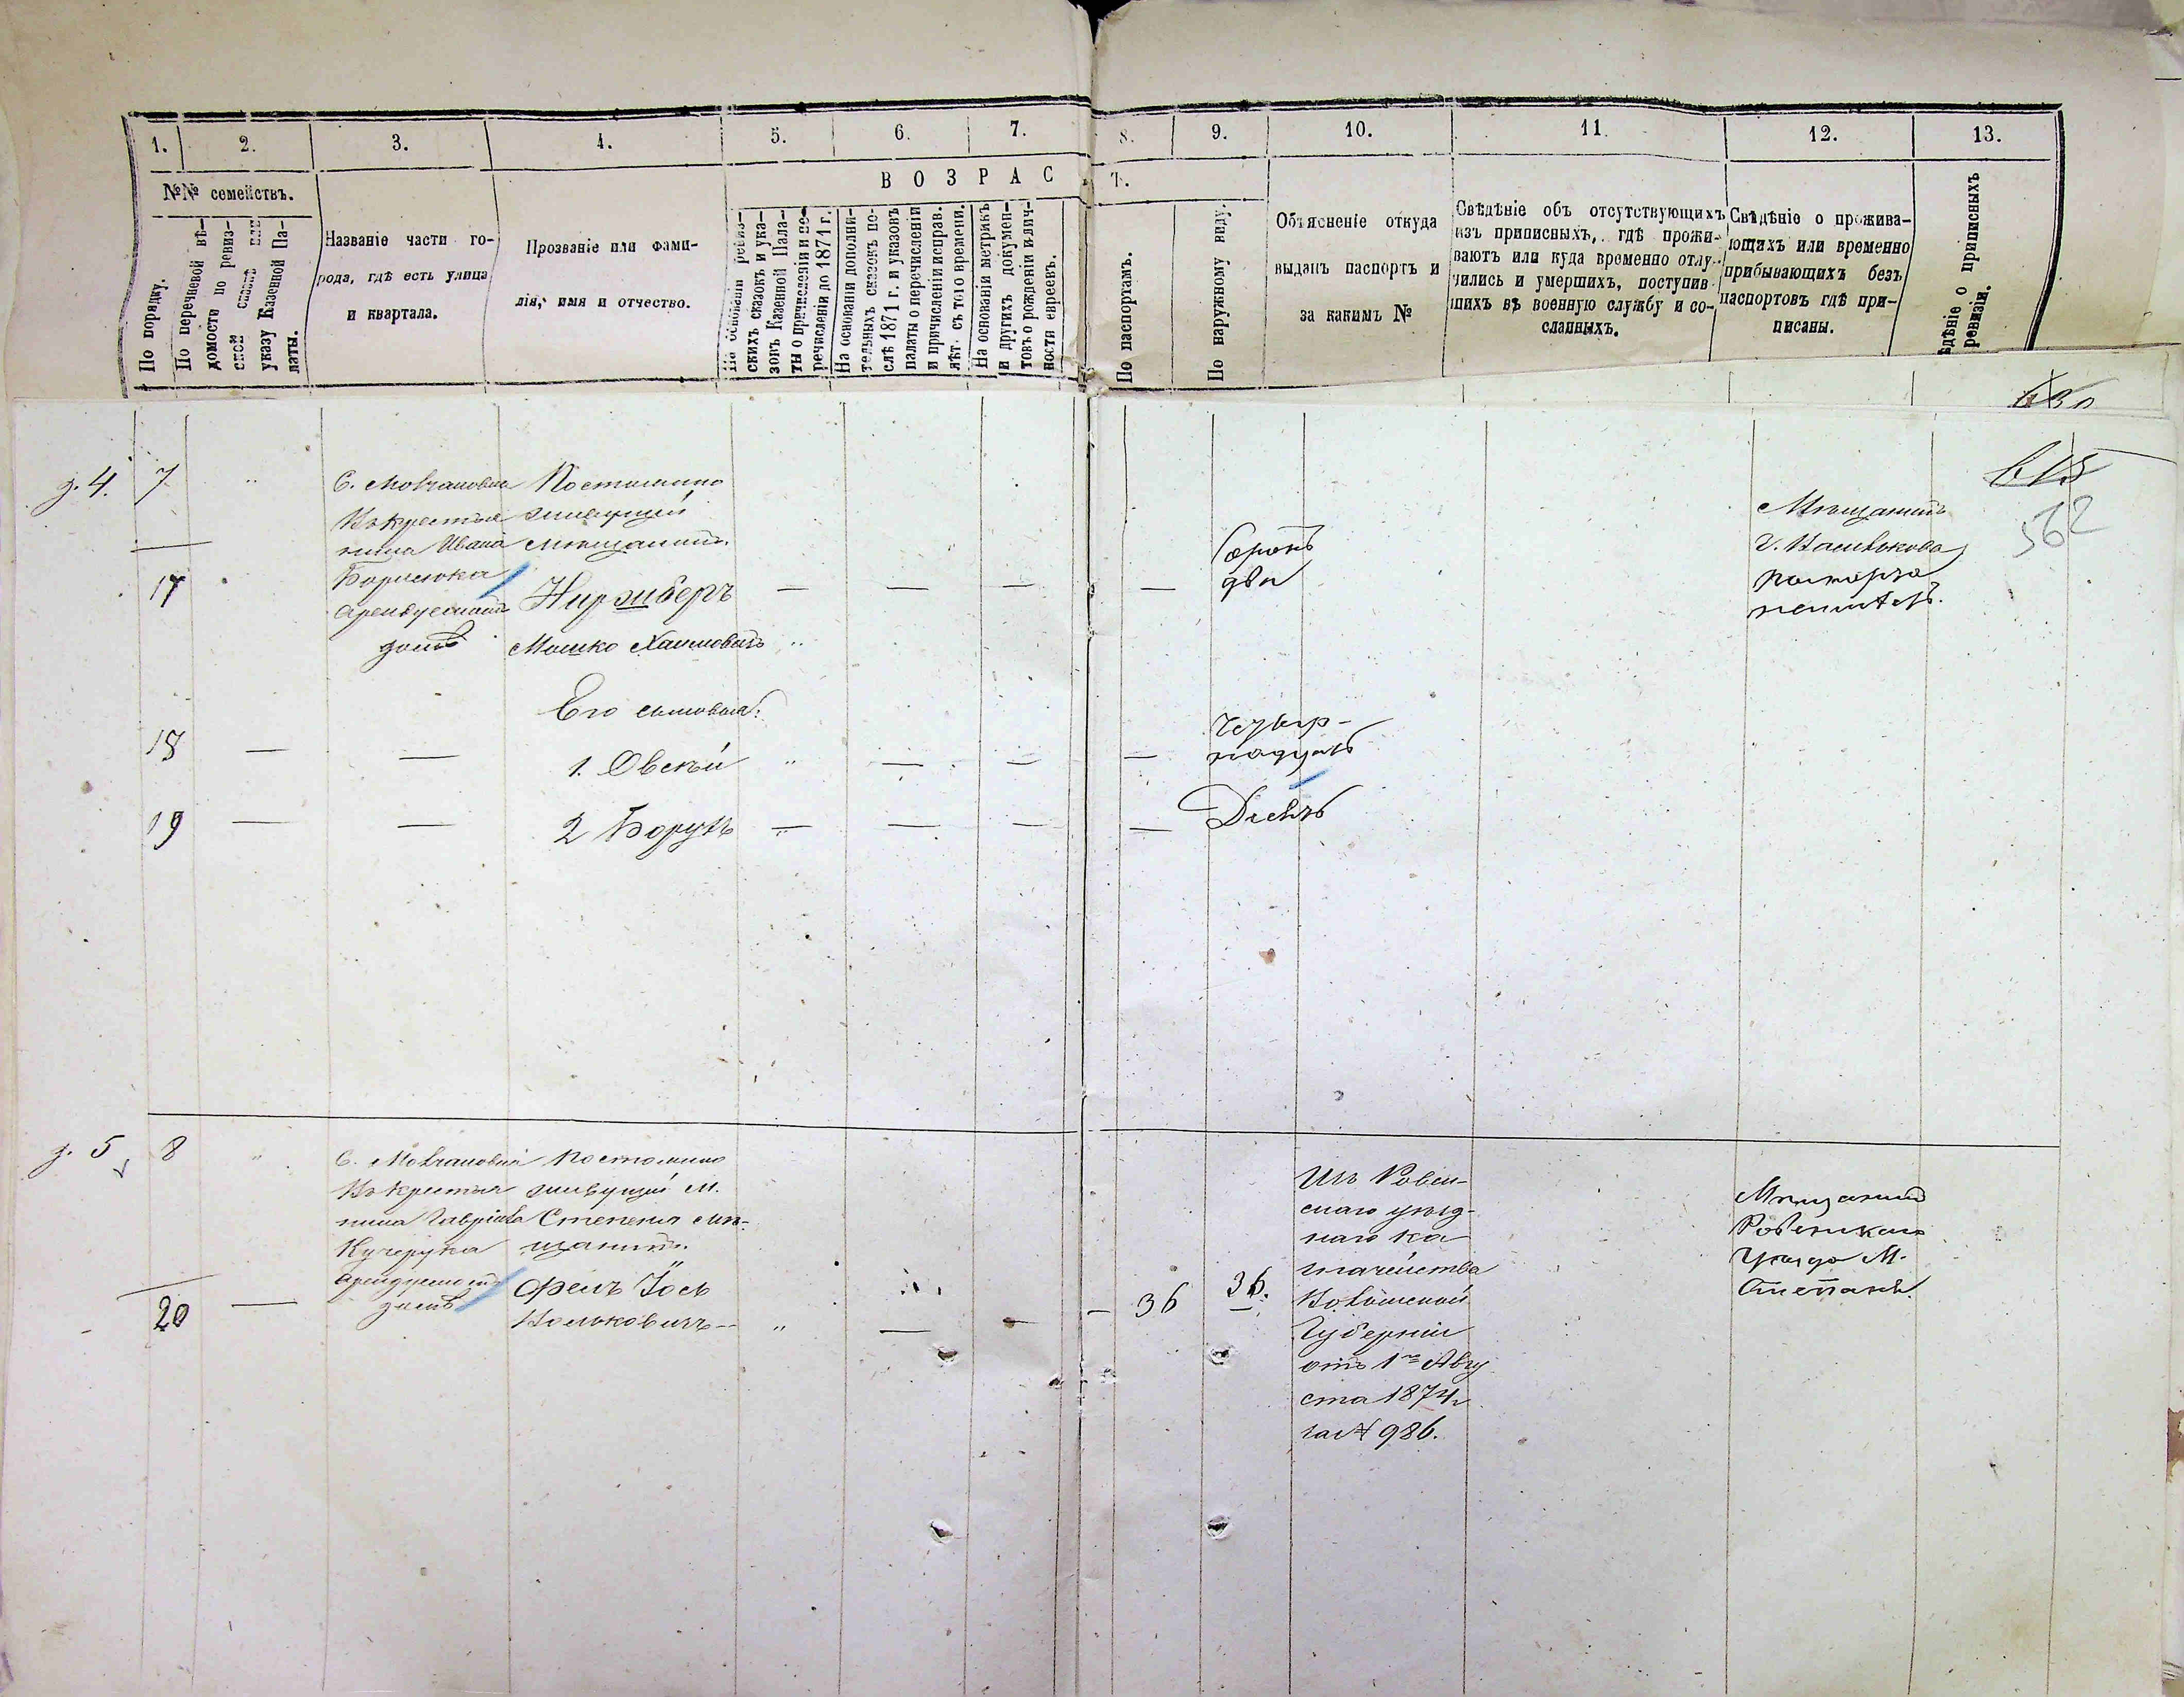 1. 2. 3. 4. 5. 6. 7. 8. 9. 10. 11. 12. 13.
№№ семействъ.
По порядку.
По перечневой вѣ-
домости по ревиз-
ской сказкѣ или
указу Казенной Па-
латы.
Названіе части го-
рода, гдѣ есть улица
и квартала.
Прозваніе или фами-
лія, имя и отчество.
ВОЗРАСТ.
На основаніи ревиз-
скихъ сказокъ и ука-
зовъ Казенной Пала-
ты о причисленіи и пе-
речисленіи до 1871 г.
На основаніи дополни-
тельныхъ сказокъ по-
слѣ 1871 г. и указовъ
палаты о перечисленіи
и причисленіи исправ.
лѣт. съ того времени.
На основаніи метрикъ
и другихъ докумен-
товъ о рожденіи и лич-
ности евреевъ.
По паспортамъ.
По наружному виду.
Объясненіе откуда
выданъ паспортъ и
за какимъ №
Свѣдѣніе объ отсутствующихъ
изъ приписныхъ, гдѣ прожи-
ваютъ или куда временно отлу-
чились и умершихъ, поступив-
шихъ въ военную службу и со-
сланныхъ.
Свѣдѣніе о прожива-
ющихъ или временно
прибывающихъ безъ
паспортовъ гдѣ при-
писаны.
ѣдѣніе о приписныхъ
ревизіи.
д. 4. 7
С. Мовчановка
Въ крестья
нина Ивана
Борисюка
арендуемый
домъ
Постоянно
живущій
мѣщанинъ.
17
Ниремберъ
Мошко Хаимовичъ
Сорокъ
два
Мѣщанинъ
г. Василькова
562
Его сыновья:
18 1. Овсѣй
Четыр-
надцать
19 2 Борухъ
д. 5 8
С. Мовчановка
Въ крестья
нина Гавріила
Кучерука
арендуемый
домъ
Постоянно
живущій М.
Степеня мѣ-
щанинъ.
20
Фельъ Іось
Вольковичъ
36 36.
Изъ Ровен-
скаго уѣзд-
наго ка
значейства
Волынской
Губерніи
отъ 1го Авгу
ста 1874 г
за № 986.
Мѣщанинъ
Ровенскаго
Уѣзда М.
Степань.